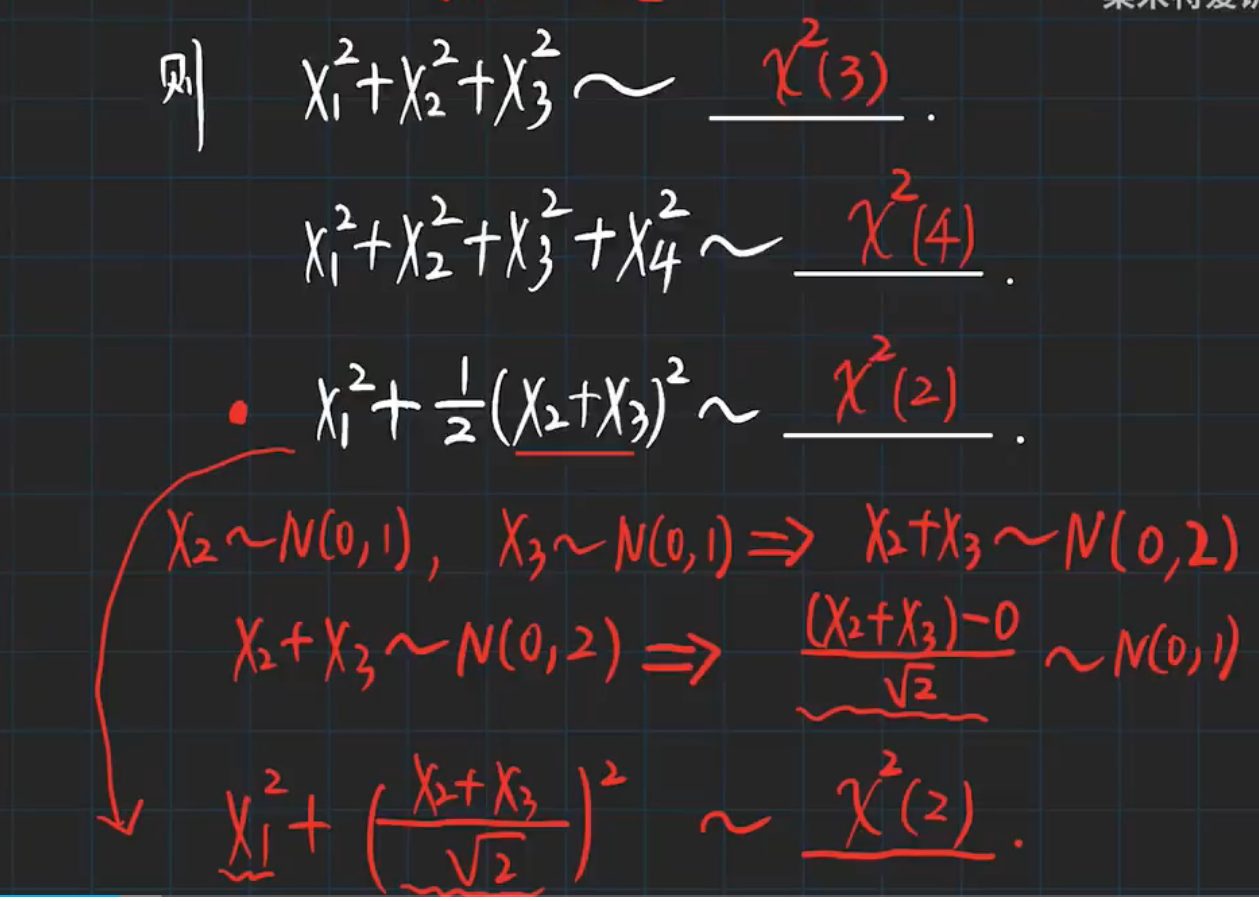 则 X₁²+X₂²+X₃² ~ χ²(3) .
X₁²+X₂²+X₃²+X₄² ~ χ²(4) .
• X₁²+\frac{1}{2}(X₂+X₃)² ~ χ²(2) .
X₂~N(0,1), X₃~N(0,1) ⇒ X₂+X₃~N(0,2)
X₂+X₃~N(0,2) ⇒ \frac{(X₂+X₃)-0}{\sqrt{2}} ~N(0,1)
X₁²+(\frac{X₂+X₃}{\sqrt{2}})² ~ χ²(2) .